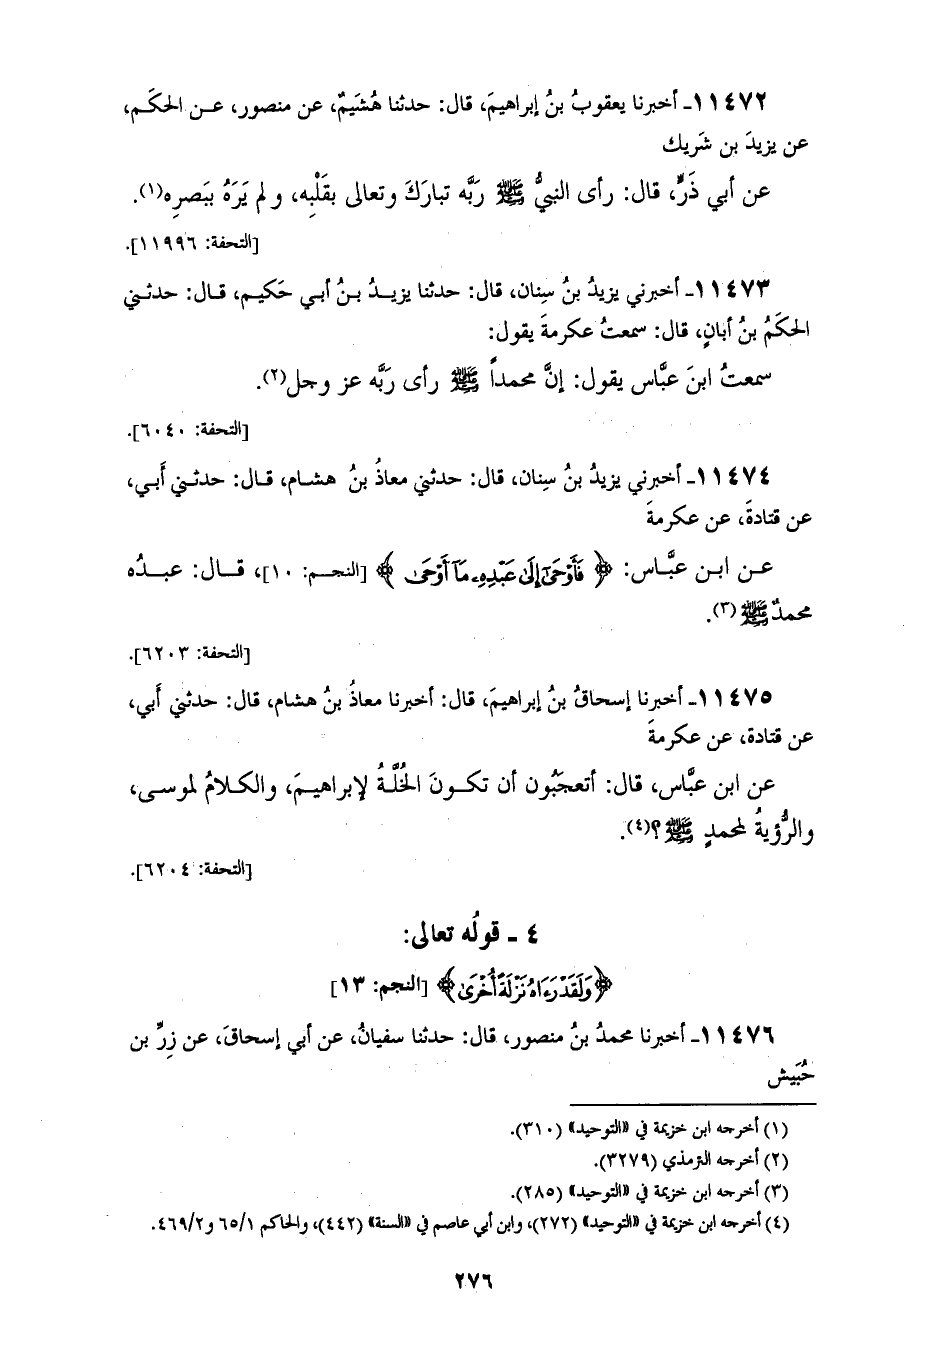 ١١٤٧٢ـ أخبرنا يعقوبُ بنُ إبراهيمَ، قال: حدثنا هُشَيمٌ، عن منصور، عـن الحكَـم،
عن يزيدَ بن شَريك
عن أبي ذَرٍّ، قال: رأى النبيُّ ﷺ رَبَّه تبارَكَ وتعالى بقَلْبِه، و لم يَرَهُ ببَصرِه(١).
[التحفة: ١١٩٩٦].
١١٤٧٣ـ أخبرني يزيدُ بنُ سِنان، قال: حدثنا يزيـدُ بـنُ أبـي حَكيـم، قـال: حدثـني
الحكَمُ بنُ أبانٍ، قال: سمعتُ عكرمةَ يقول:
سمعتُ ابنَ عبَّاس يقول: إنَّ محمداً ﷺ رأى رَبَّه عز وجل(٢).
[التحفة: ٦٠٤٠].
١١٤٧٤ـ أخبرني يزيدُ بنُ سِنان، قال: حدثني معاذُ بنُ هشـام، قـال: حدثـني أَبـي،
عن قتادةَ، عن عكرمةَ
عـن ابـن عبَّـاس: ﴿ فَأَوْحَىٰٓ إِلَىٰ عَبْدِهِۦ مَآ أَوْحَىٰ ﴾ [النجـم: ١٠]، قـال: عبـدُه
محمدٌ ﷺ (٣).
[التحفة: ٦٢٠٣].
١١٤٧٥ـ أخبرنا إسحاقُ بنُ إبراهيمَ، قال: أخبرنا معاذُ بنُ هشام، قال: حدثني أَبي،
عن قتادة، عن عكرمةَ
عن ابن عبَّاس، قال: أتعجَبُون أن تكـونَ الخُلَّـةُ لإبراهيـمَ، والكـلامُ لموسـى،
والرُّؤيةُ لمحمدٍ ﷺ؟(٤).
[التحفة: ٦٢٠٤].
٤ ـ قولُه تعالى:
﴿وَلَقَدْ رَءَاهُ نَزْلَةً أُخْرَىٰ﴾ [النجم: ١٣]
١١٤٧٦ـ أخبرنا محمدُ بنُ منصور، قال: حدثنا سفيانُ، عن أبي إسحاقَ، عن زِرِّ بن
حُبَيش
(١) أخرجه ابن خزيمة في «التوحيد» (٣١٠).
(٢) أخرجه الترمذي (٣٢٧٩).
(٣) أخرجه ابن خزيمة في «التوحيد» (٢٨٥).
(٤) أخرجه ابن خزيمة في «التوحيد» (٢٧٢)، وابن أبي عاصم في «السنة» (٤٤٢)، والحاكم ٦٥/١ و٤٦٩/٢.
٢٧٦